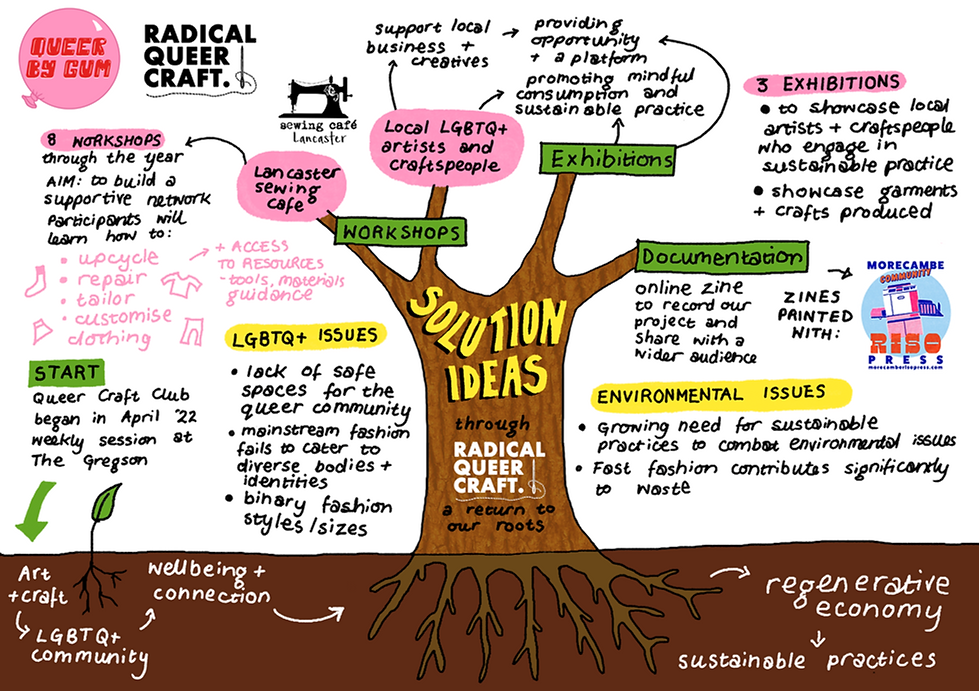 QUEER
BY GUM
RADICAL
QUEER
CRAFT.
sewing café
Lancaster
support local
business +
creatives
providing
opportunity
+ a platform
promoting mindful
consumption and
sustainable practice
3 EXHIBITIONS
• to showcase local
artists + craftspeople
who engage in
sustainable practice
• showcase garments
+ crafts produced
8 WORKSHOPS
through the year
AIM: to build a
supportive network
Participants will
learn how to:
• upcycle
• repair
• tailor
• customise
clothing
+ ACCESS
TO RESOURCES
- tools, materials
guidance
Lancaster
sewing
cafe
Local LGBTQ+
artists and
craftspeople
Exhibitions
WORKSHOPS
Documentation
online zine
to record our
project and
share with a
wider audience
ZINES
PRINTED
WITH:
MORECAMBE
COMMUNITY
RISO
PRESS
morecamberisopress.com
SOLUTION
IDEAS
through
RADICAL
QUEER
CRAFT.
a return to
our roots
LGBTQ+ ISSUES
• lack of safe
spaces for the
queer community
• mainstream fashion
fails to cater to
diverse bodies +
identities
• binary fashion
styles/sizes
ENVIRONMENTAL ISSUES
• Growing need for sustainable
practices to combat environmental issues
• Fast fashion contributes significantly
to waste
START
Queer Craft Club
began in April '22
weekly session at
The Gregson
Art
+craft
LGBTQ+
community
wellbeing +
connection
regenerative
economy
sustainable practices